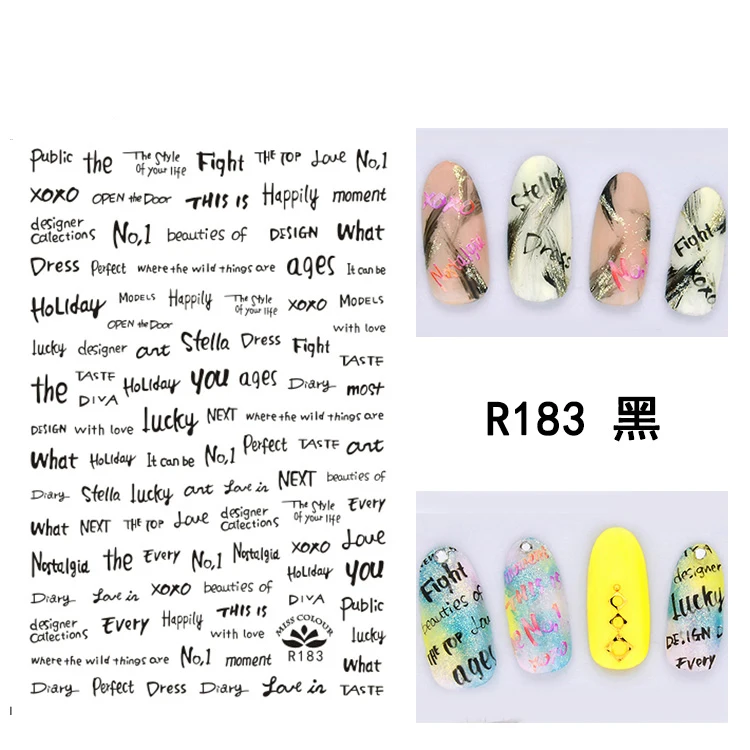 Public the The Style of your life Fight THE TOP Love No,1
XOXO OPEN the Door THIS IS Happily moment
designer Calections No,1 beauties of DESIGN What
Dress Perfect where the wild things are ages It can be
HoLIday MODELS Happily The Style of your life XOXO MODELS
OPEN the Door with love
lucky designer art Stella Dress Fight
TASTE
the TASTE DIVA HoLIday you ages Diary most
DESIGN with love lucky NEXT where the wild things are
What HoLIday It can be No,1 Perfect TASTE art
Diary Stella lucky art Love in NEXT beauties of
What NEXT THE TOP Love designer Calections The Style of your life Every
Nostalgia the Every No,1 Nostalgia XOXO Love
HoLIday you
Diary Love in XOXO beauties of DIVA Public
designer Calections Every Happily THIS IS with love MISS COLOUR lucky
where the wild things are No,1 moment R183 What
Diary Perfect Dress Diary Love in TASTE
Stella
Dress
Nostalgia
No,1
Fight
XOXO
R183 黑
Fight
beauties of
THE TOP Love
ages
No,1
designer
lucky
DESIGN D
Every